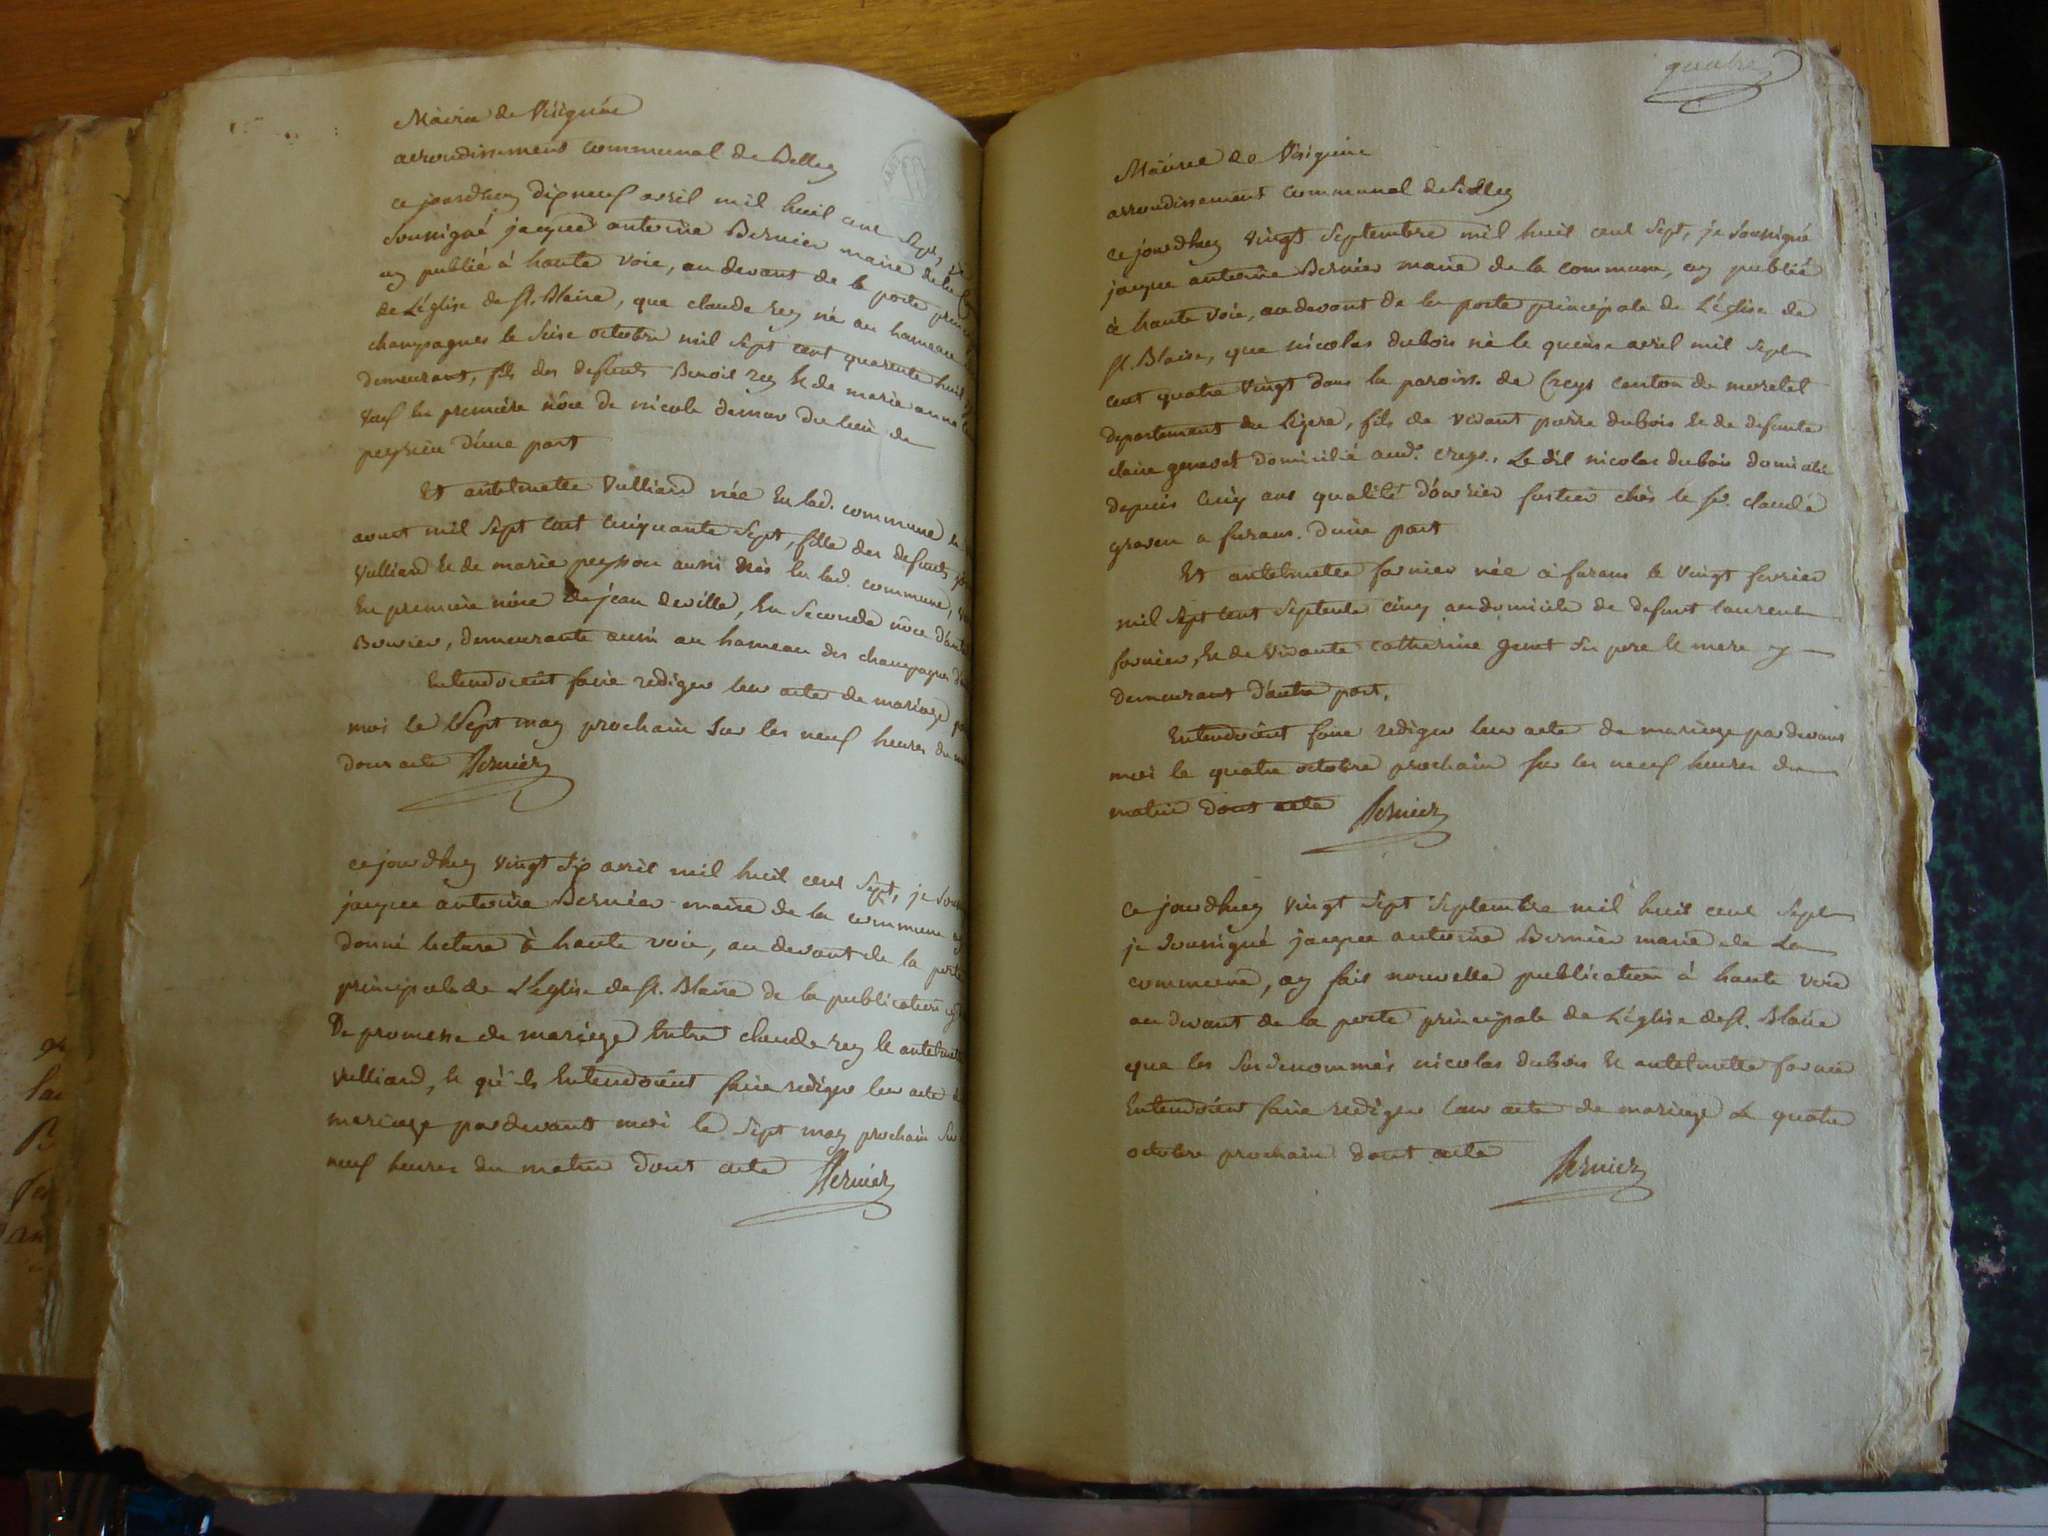 Mairie de Virignin
arrondissement communal de Belley
ce jourdhuy dix neuf avril mil huit cent sept, je
soussigné jacque antoine Bernier maire de la
ay publié à haute voie, au devant de la porte
de L'église de st. Blaise, que claude rey né au hameau
champagnes le seise octobre mil sept cent quarente huit
demeurant, fils des defunts Benoit rey & de marie anne
veuf en première nôce de nicole demar du lieu de
peyrieu d'une part
Et antelmette Vulliard née en lad. commune
aoust mil sept cent cinquante sept, fille des defunts
Vulliard & de marie peysson aussi nés en lad. commune,
En première nôce de jean deville, En seconde nôce
Bouvier, demeurante aussi au hameau des champagnes
Entendoient faire rediger leur acte de mariage
moi le sept may prochain sur les neuf heures du
dont acte Bernier
ce jourdhuy vingt six avril mil huit cent sept, je
jacque antoine Bernier maire de la commune ay
donné lecture à haute voie, au devant de la porte
principale de L'église de st. Blaise de la publication
De promesse de mariage Entre claude rey & antelmette
Vulliard, & qu'ils Entendoient faire rediger leur acte de
mariage pardevant moi le sept may prochain sur
neuf heures du matin dont acte Bernier
quatre
Mairie de Virignin
arrondissement communal de Belley
ce jourdhuy vingt septembre mil huit cent sept, je soussigné
jacque antoine Bernier maire de la commune, ay publié
à haute voie, au devant de la porte principale de L'église de
st. Blaise, que nicolas dubois né le quinse avril mil sept
cent quatre vingt dans la paroisse de Creys canton de morestel
departement de Lisere, fils de vivant pierre dubois & de defunte
claire genevet domicilié aud. creys, Le dit nicolas dubois domicilié
depuis cinq ans qualité d'ouvrier fustier chès le sr. claude
graven a furans. d'une part
Et antelmette fornier née à furans le vingt fevrier
mil sept cent septente cinq au domicile de defunt laurent
fornier, & de vivante catherine genet ses pere & mere y
demeurant d'autre part,
Entendoient faire rediger leur acte de mariage pardevant
moi le quatre octobre prochain sur les neuf heures du
matin dont acte Bernier
ce jourdhuy vingt sept septembre mil huit cent sept
je soussigné jacque antoine Bernier maire de La
commune, ay fait nouvelle publication à haute voie
au devant de la porte principale de L'église de st. Blaise
que les susdenommés nicolas dubois & antelmette fornier
Entendoient faire rediger leur acte de mariage le quatre
octobre prochain dont acte Bernier